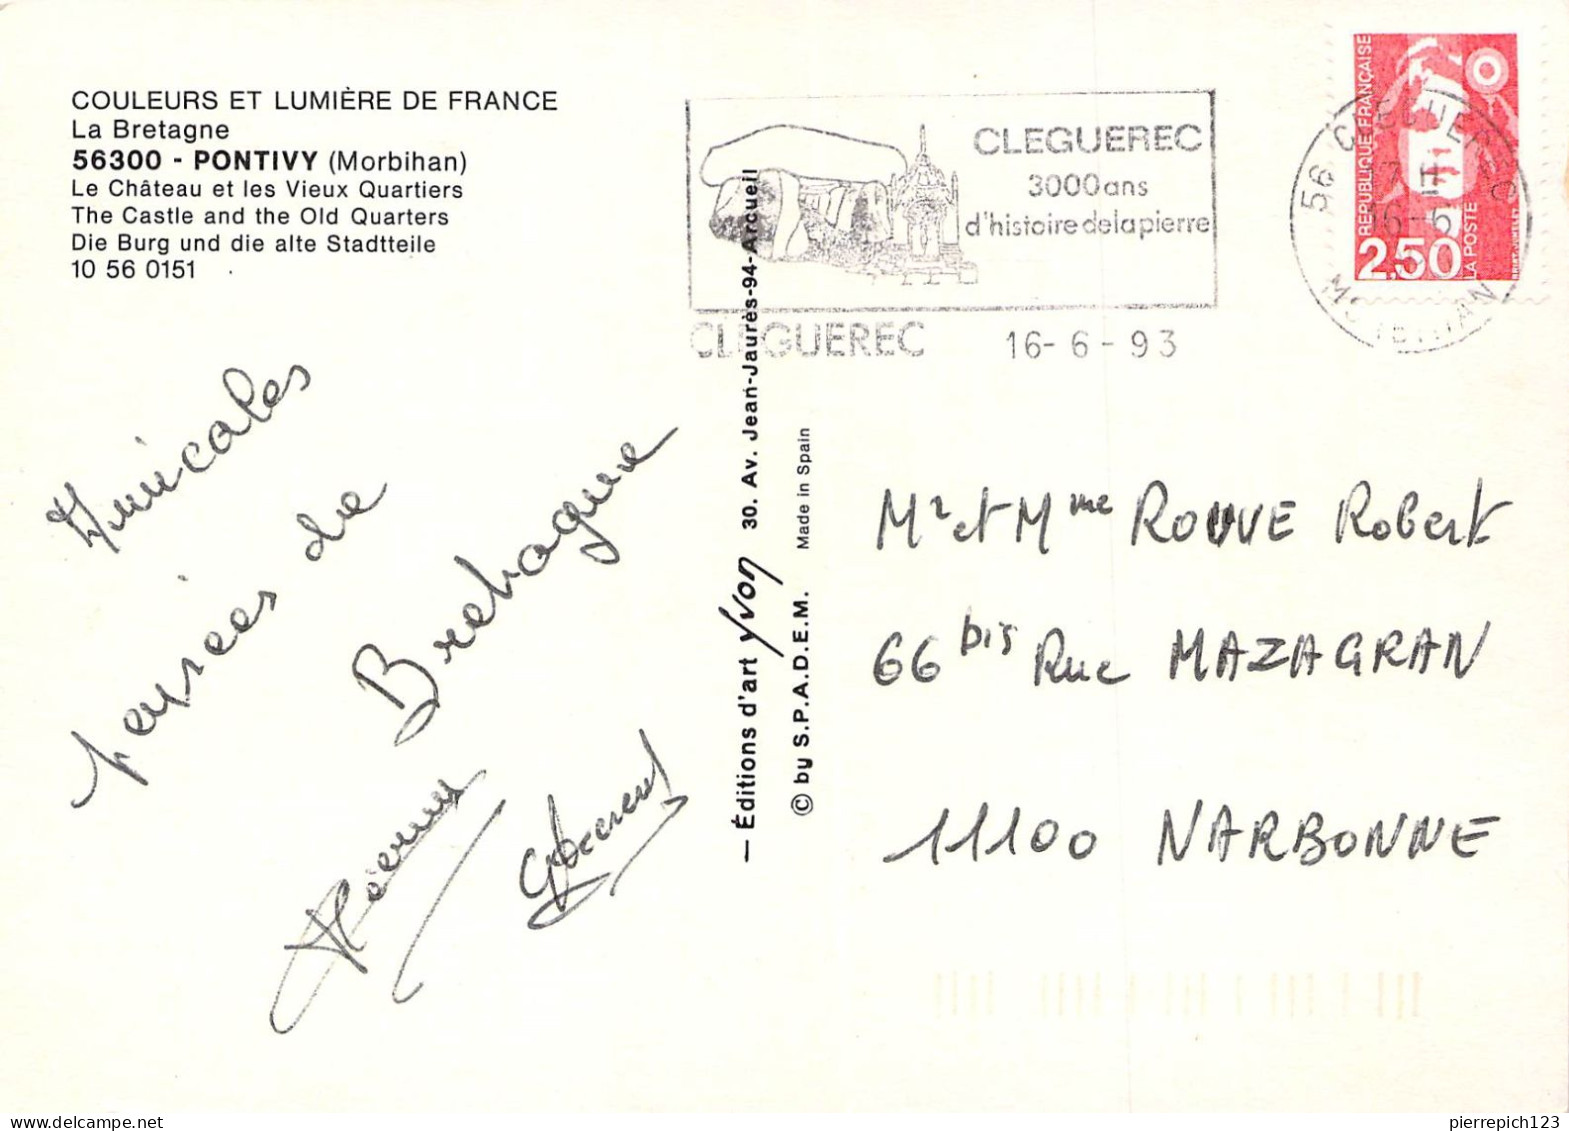 COULEURS ET LUMIÈRE DE FRANCE
La Bretagne
56300 - PONTIVY (Morbihan)
Le Château et les Vieux Quartiers
The Castle and the Old Quarters
Die Burg und die alte Stadtteile
10 56 0151
CLEGUEREC
3000ans
d'histoiredelapierre
CLEGUEREC 16-6-93
RÉPUBLIQUE FRANÇAISE
2,50
LA POSTE
56 CLEGUEREC
16-6
MORBIHAN
Amicales
pensées de
Bretagne
— Éditions d'art Yvon 30. Av. Jean-Jaurès-94-Arcueil
© by S.P.A.D.E.M. Made in Spain
Mr et Mme ROUVE Robert
66 bis Rue MAZAGRAN
11100 NARBONNE
www.delcampe.net
pierrepich123